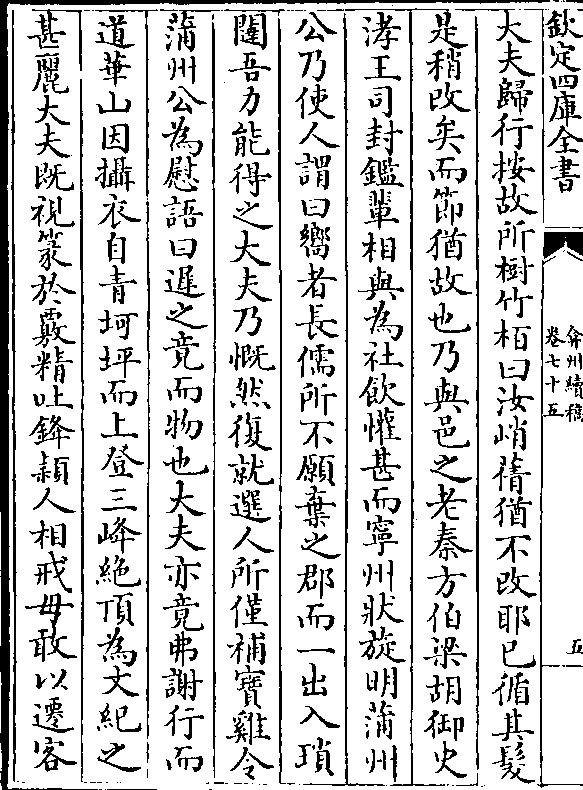 欽定四庫全書
弇州續稿
卷七十五
五
大夫歸行按故所樹竹栢曰汝峭蒨猶不改耶已循其髮
是稍改矣而節猶故也乃與邑之老秦方伯梁胡御史
涍王司封鑑輩相與為社飲懽甚而寧州狀旋明蒲州
公乃使人謂曰嚮者長儒所不願棄之郡而一出入瑣
闥吾力能得之大夫乃慨然復就選人所僅補寶雞令
蒲州公為慰語曰遲之竟而物也大夫亦竟弗謝行而
道華山因攝衣自青坷坪而上登三峰絶頂為文紀之
甚麗大夫既視篆於覈精吐鋒頴人相戒毋敢以遷客